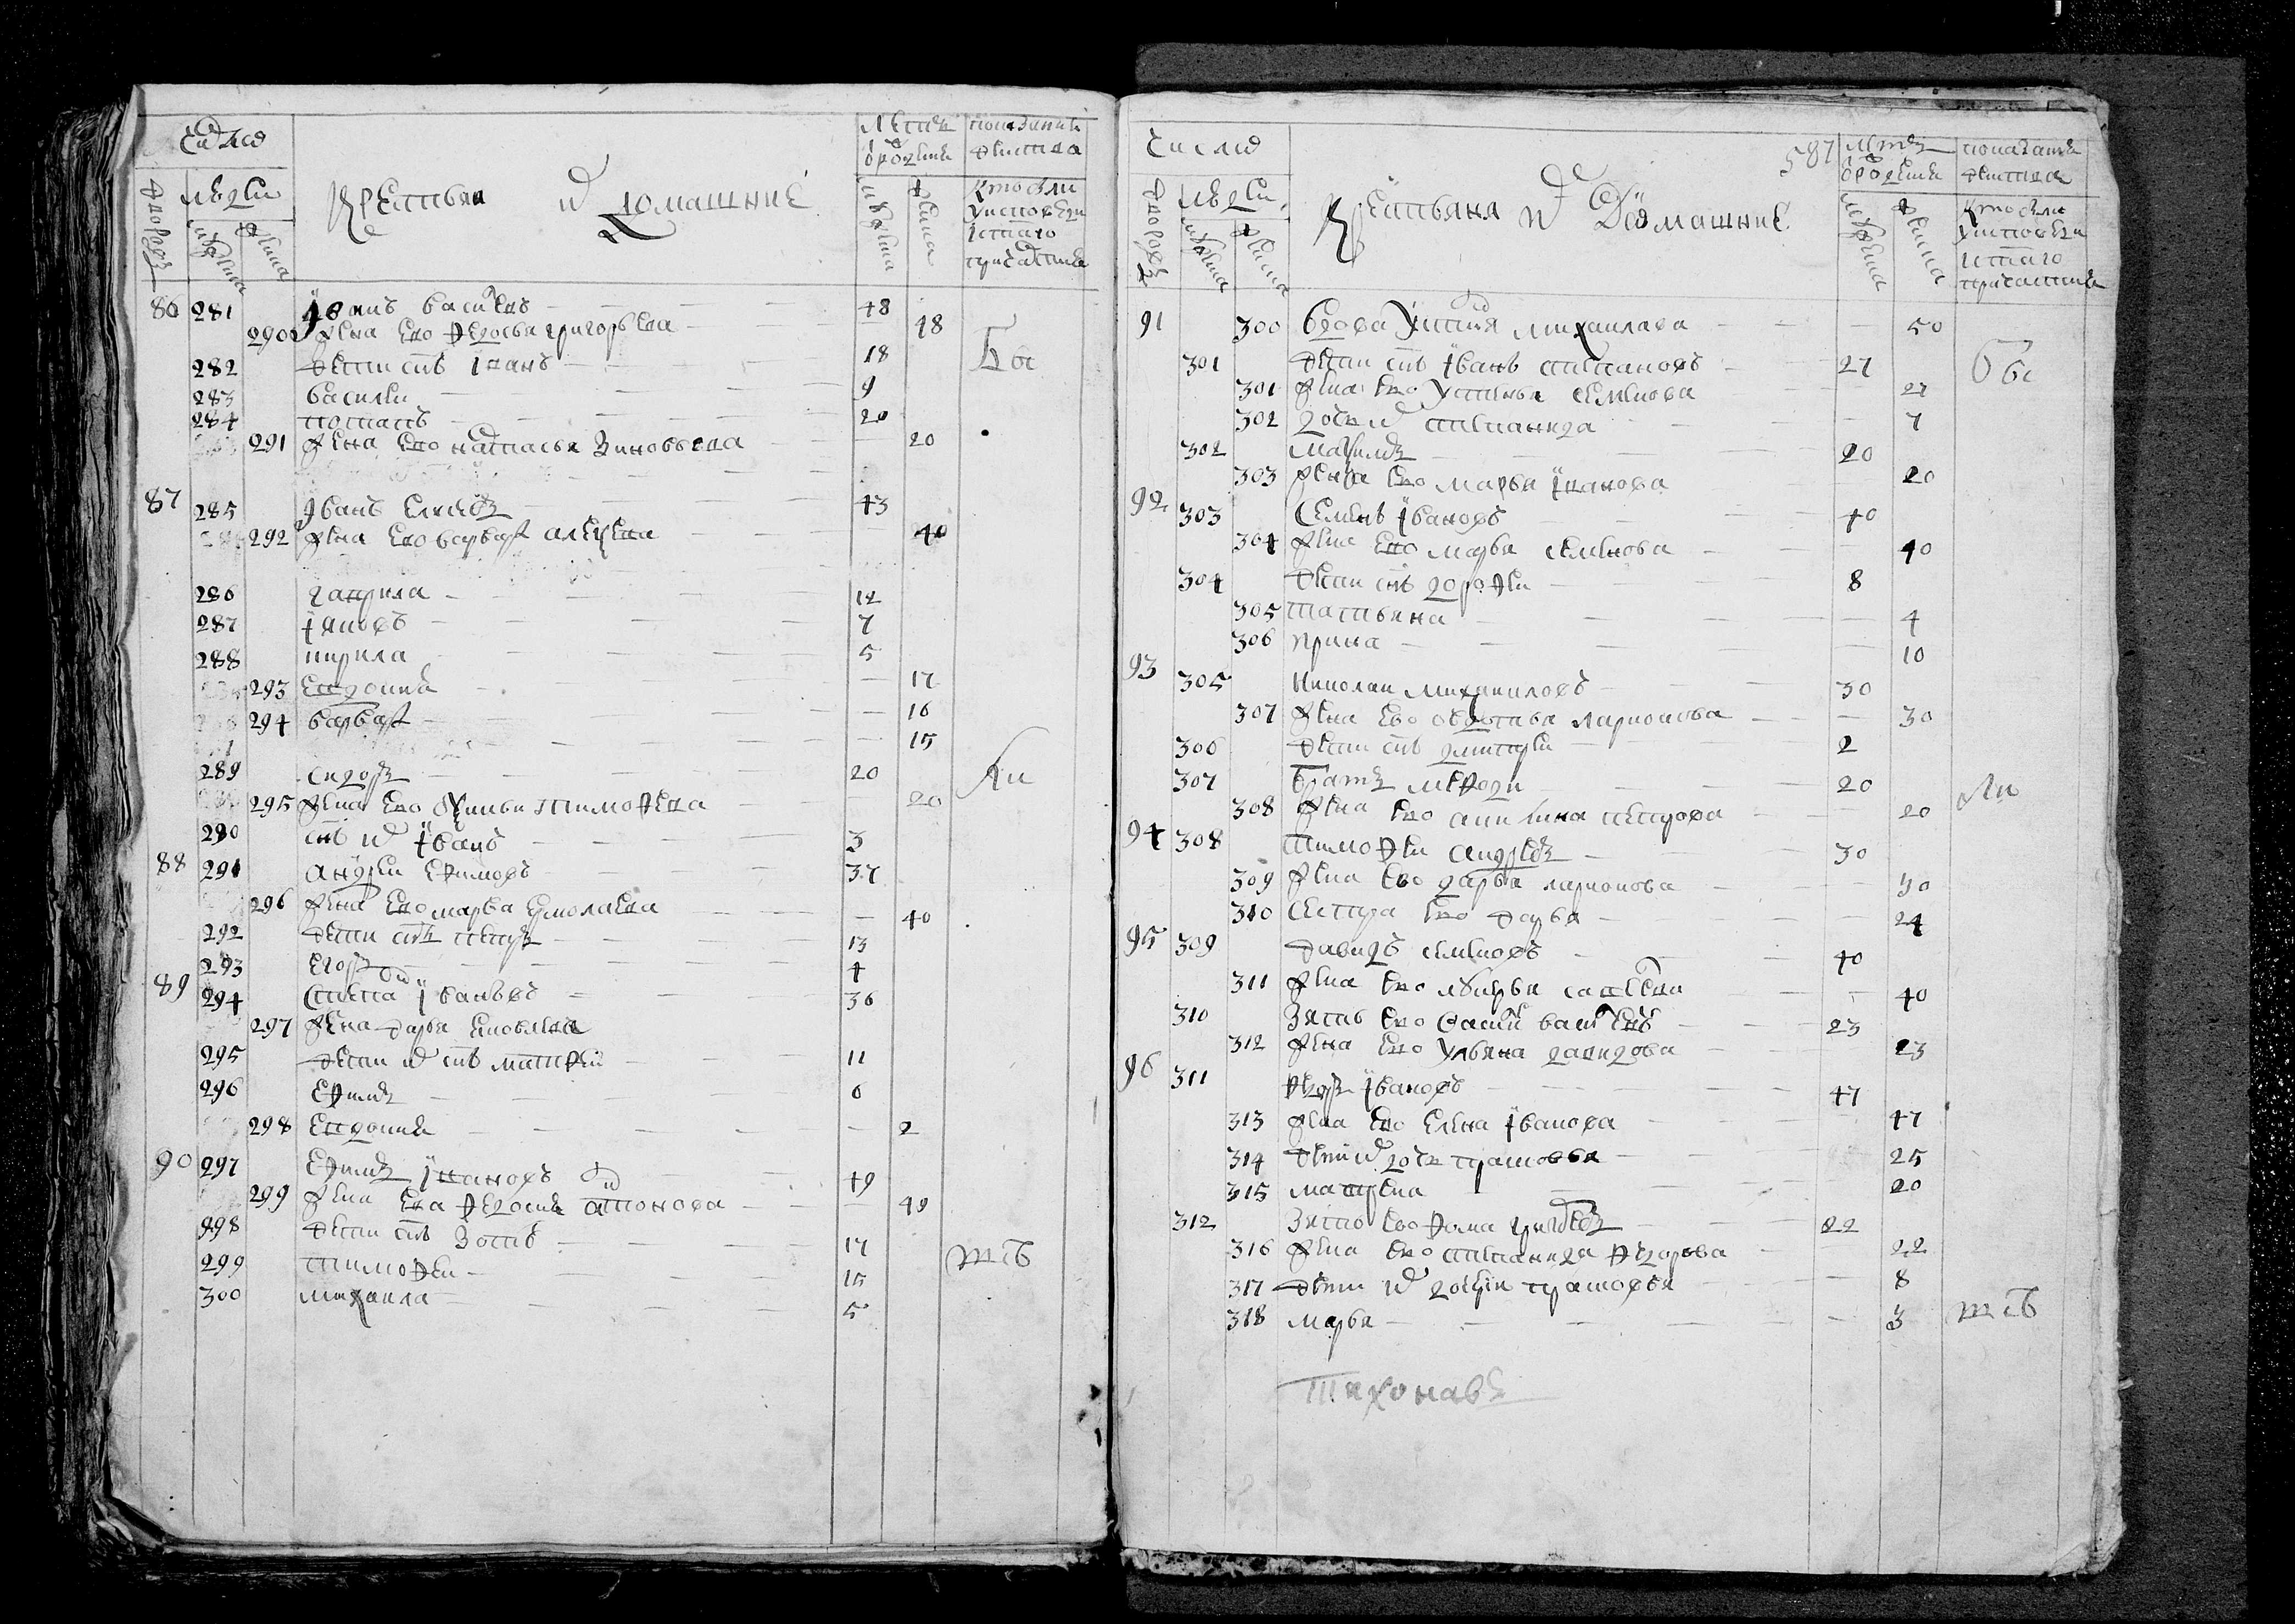 Число
Крестьяня и домашние
Лѣтъ от рождения
показание действа
дворовъ
людей
мужеска
женска
мужеска
женска
Кто были у исповеди и святаго причастия
86 281 Иванъ Василевъ 48
290 Жена ево Федосья Григорьева 48
Бы
282 Дети сынъ Иванъ 18
283 Василей 9
284 Потапъ 20
291 Жена ево Настасья Зиновьева 20
87 285 Иванъ 43
292 Жена ево Варвара Алексева 40
286 Гаврила 12
287 Яковъ 7
288 Кирила 5
293 Евдокия 17
294 Варвара 16
15
289 Сидоръ 20
ли
295 Жена ево Аксинья Тимофеева 20
290 сынъ их Иванъ 3
88 291 Андрей Ефимовъ 37
296 Жена ево Марья Ермолаева 40
292 Дети сынъ Петръ 13
293 Егоръ 4
89 294 Степанъ Ивановъ 36
297 Жена Дарья Яковлева
295 Дети их сынъ Матвей 11
296 Ефимъ 6
298 Евдокия 2
90 297 Ефимъ Ивановъ 49
299 Жена ево Федосья Антонова 49
298 Дети сынъ Зотъ 17
299 Тимофей 15
тсь
300 Михаила 5
587
Число
Крестьяня и Домашние
Лѣтъ от рождения
показание действа
дворовъ
людей
мужеска
женска
мужеска
женска
Кто были у исповеди и святаго причастия
91 300 Вдова Устинья Михаилава 50
301 Дети сынъ Иванъ Степановъ 27
Бы
301 Жена ево Устинья Семенова 27
302 дочь их Степанида 7
302 Максимъ 20
303 Жена ево Марья Иванова 20
92 303 Семенъ Ивановъ 40
304 Жена ево Марья Семенова 40
304 Дети сынъ Дорофей 8
305 Татьяна 4
306 Ирина 10
93 305 Николай Михаиловъ 30
307 Жена ево Овдотья Ларионова 30
306 Дети сынъ Дмитрей 2
307 Братъ Мефодий 20
ли
308 Жена ево Акилина Петрова 20
94 308 Тимофей Андреевъ 30
309 Жена ево Дарья Ларионова 30
310 Сестра ево Дарья 24
95 309 Давидъ Семеновъ 40
311 Жена ево Лукерья Савелева 40
310 Зять ево Василей Василевъ 23
312 Жена ево Ульяна Давидова 23
96 311 Федоръ Ивановъ 47
313 Жена ево Елена Иванова 47
314 Дети их дочь Прасковья 25
315 Матрена 20
312 Зять ево Фома 22
316 Жена ево Степанида Федорова 22
317 Дети их дочери Прасковья 8
318 Марья 3
тсь
Тихонавъ